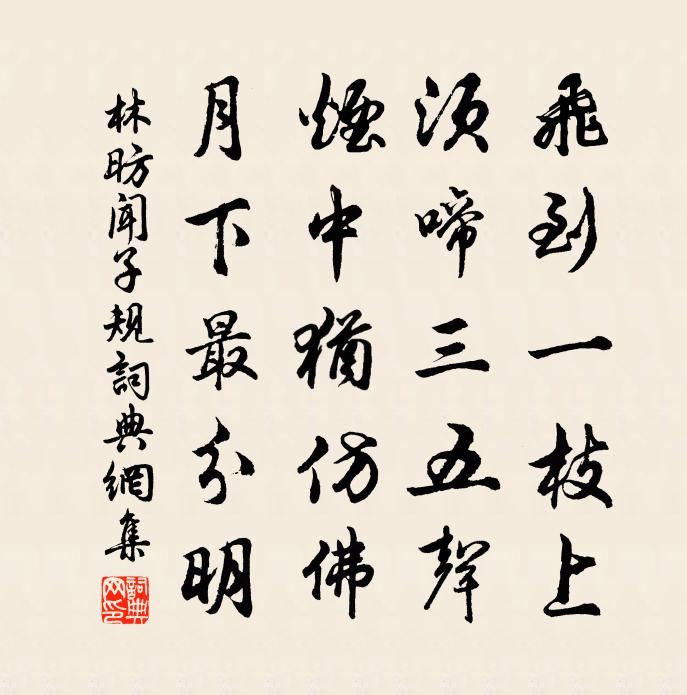 飛到一枝上
須啼三五聲
煙中猶仿佛
月下最分明
林昉聞子規詞典網集
詞典网印